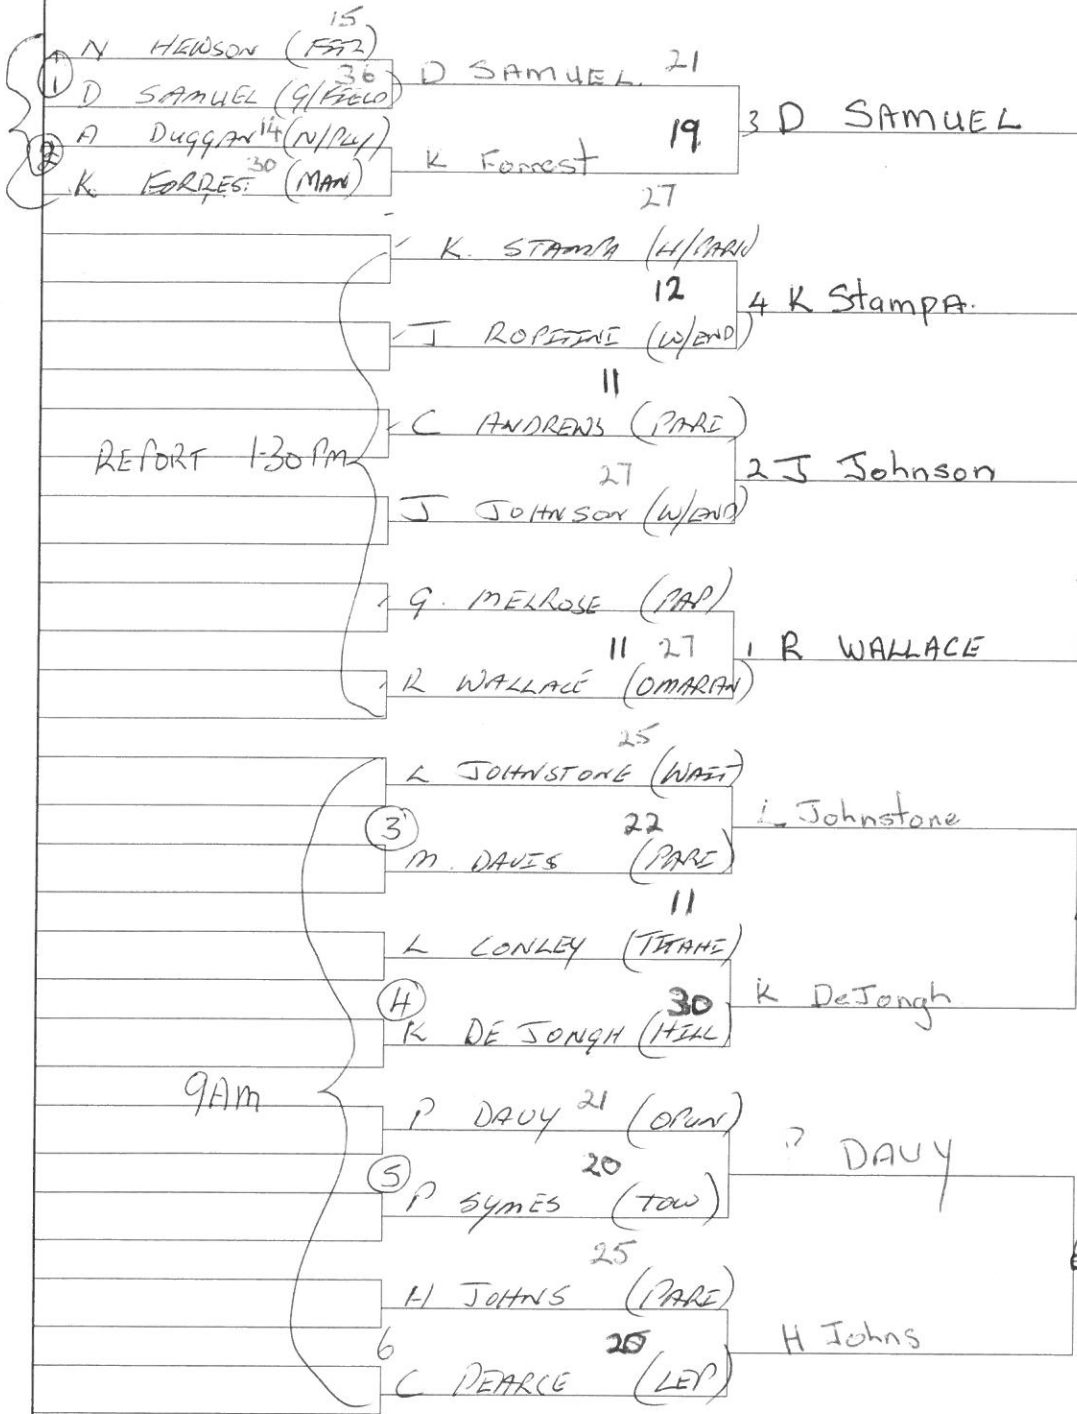 15
N HEWSON (FITZ)
1
36
D SAMUEL (G/FIELD)
D SAMUEL. 21
A DUGGAN 14 (N/PLY)
2
K. FORREST 30 (MAN)
19.
K Forrest
3 D SAMUEL
27
K. STAMPA (H/PARK)
12
J ROPITINI (W/END)
4 K Stampa.
11
C ANDREWS (PARI)
REPORT 1-30 PM
27
J JOHNSON (W/END)
2 J Johnson
G. MELROSE (PAP)
11 27
R WALLACE (OMARAN)
1 R WALLACE
25
L JOHNSTONE (WAIT)
3
22
M. DAVIS (PARI)
L Johnstone
11
L CONLEY (TITAHI)
4
30
K DE JONGH (HILL)
K DeJongh
9AM
P DAVY 21 (OPUN)
5
20
P SYMES (TOW)
P DAVY
25
H JOHNS (PARI)
6
20
C PEARCE (LEP)
H Johns